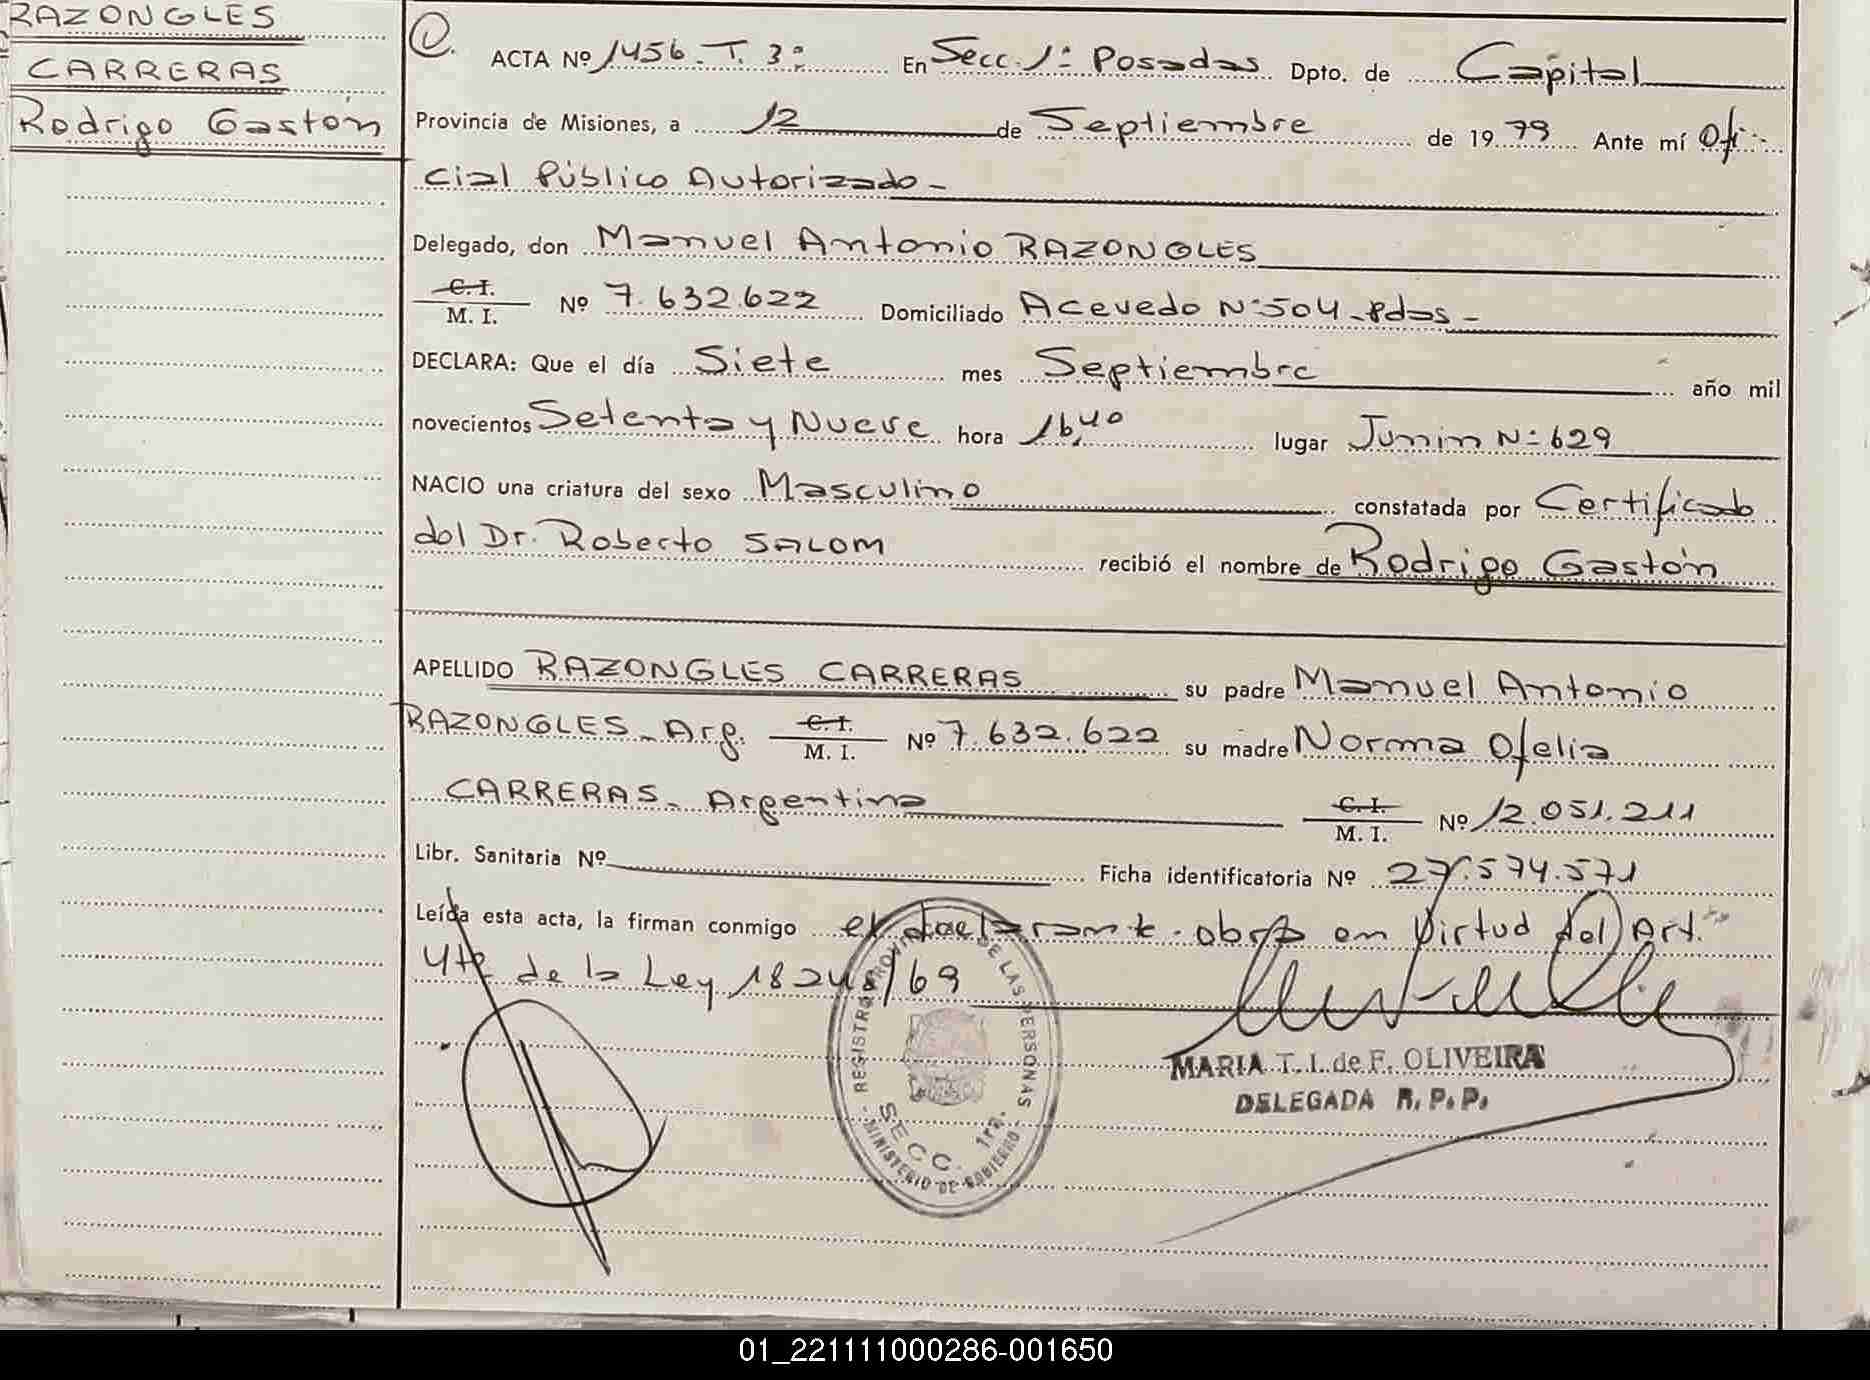 RAZONGLES
CARRERAS
Rodrigo Gastón
ACTA Nº 1456. T. 3º: En Secc. 1ª Posadas Dpto. de Capital
Provincia de Misiones, a 12 de Septiembre de 1979 Ante mí Ofi-
cial Público Autorizado -
Delegado, don Manuel Antonio RAZONGLES
C.I.
M. I. Nº 7.632.622 Domiciliado Acevedo Nº 504 - Pdas -
DECLARA: Que el día Siete mes Septiembre año mil
novecientos Setenta y Nueve hora 16,40 lugar Junin Nº 629
NACIO una criatura del sexo Masculino constatada por Certificado
del Dr. Roberto SALOM recibió el nombre de Rodrigo Gastón
APELLIDO RAZONGLES CARRERAS su padre Manuel Antonio
RAZONGLES - Arg. C.I.
M. I. Nº 7.632.622 su madre Norma Ofelia
CARRERAS - Argentina C.I.
M. I. Nº 12.051.211
Libr. Sanitaria Nº Ficha identificatoria Nº 27.574.571
Leída esta acta, la firman conmigo el declarante - obra en Virtud del Art.
de la Ley 18248/69
REGISTRO PROVINCIAL DE LAS PERSONAS
SECC. 1ra.
MINISTERIO DE GOBIERNO
MARIA T. I. de F. OLIVEIRA
DELEGADA R. P. P.
01_221111000286-001650